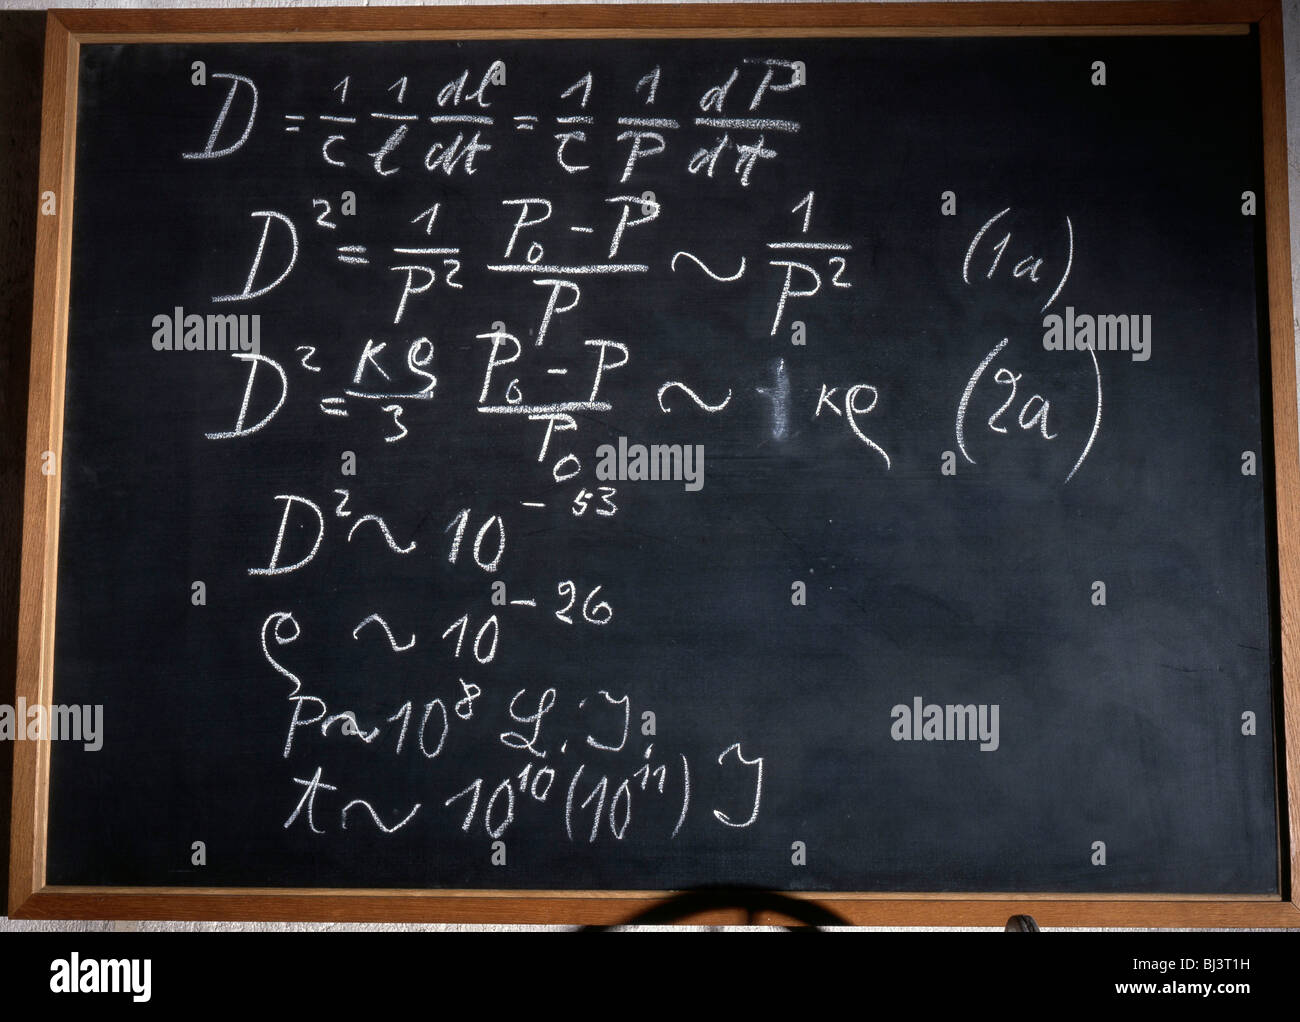 D = 1/c 1/l dl/dt = 1/c 1/P dP/dt
D² = 1/P² (P₀-P)/P ~ 1/P² (1a)
D² = κρ/3 (P₀-P)/P₀ ~ κρ (2a)
D² ~ 10⁻⁵³
ρ ~ 10⁻²⁶
P ~ 10⁸ L.J.
t ~ 10¹⁰ (10¹¹) J
alamy
alamy
alamy
alamy
alamy
alamy
Image ID: BJ3T1H
www.alamy.com